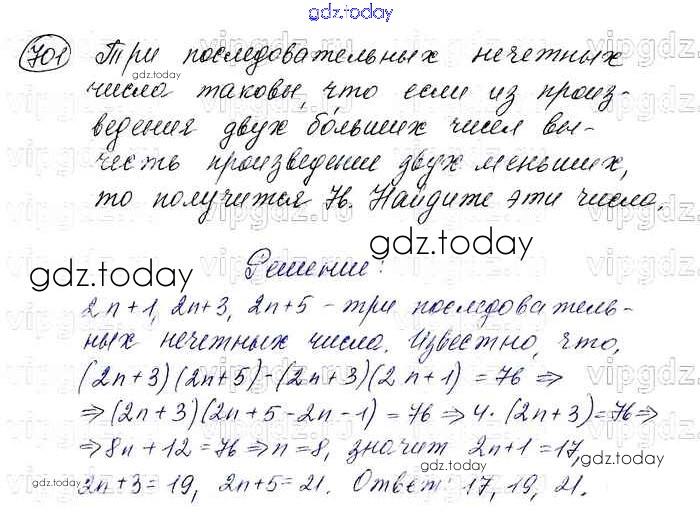 gdz.today
701 Три последовательных нечетных
числа таковы, что если из произ-
ведения двух бо́льших чисел вы-
честь произведение двух меньших,
то получится 76. Найдите эти числа.
Решение:
2n+1, 2n+3, 2n+5 - три последователь-
ных нечетных числа. Известно, что,
(2n+3)(2n+5)-(2n+3)(2n+1) = 76 ⇒
⇒ (2n+3)(2n+5-2n-1) = 76 ⇒ 4·(2n+3)=76 ⇒
⇒ 8n+12=76 ⇒ n=8, значит 2n+1=17,
2n+3=19, 2n+5=21. Ответ: 17, 19, 21.
gdz.today
gdz.today
gdz.today
gdz.today
gdz.today